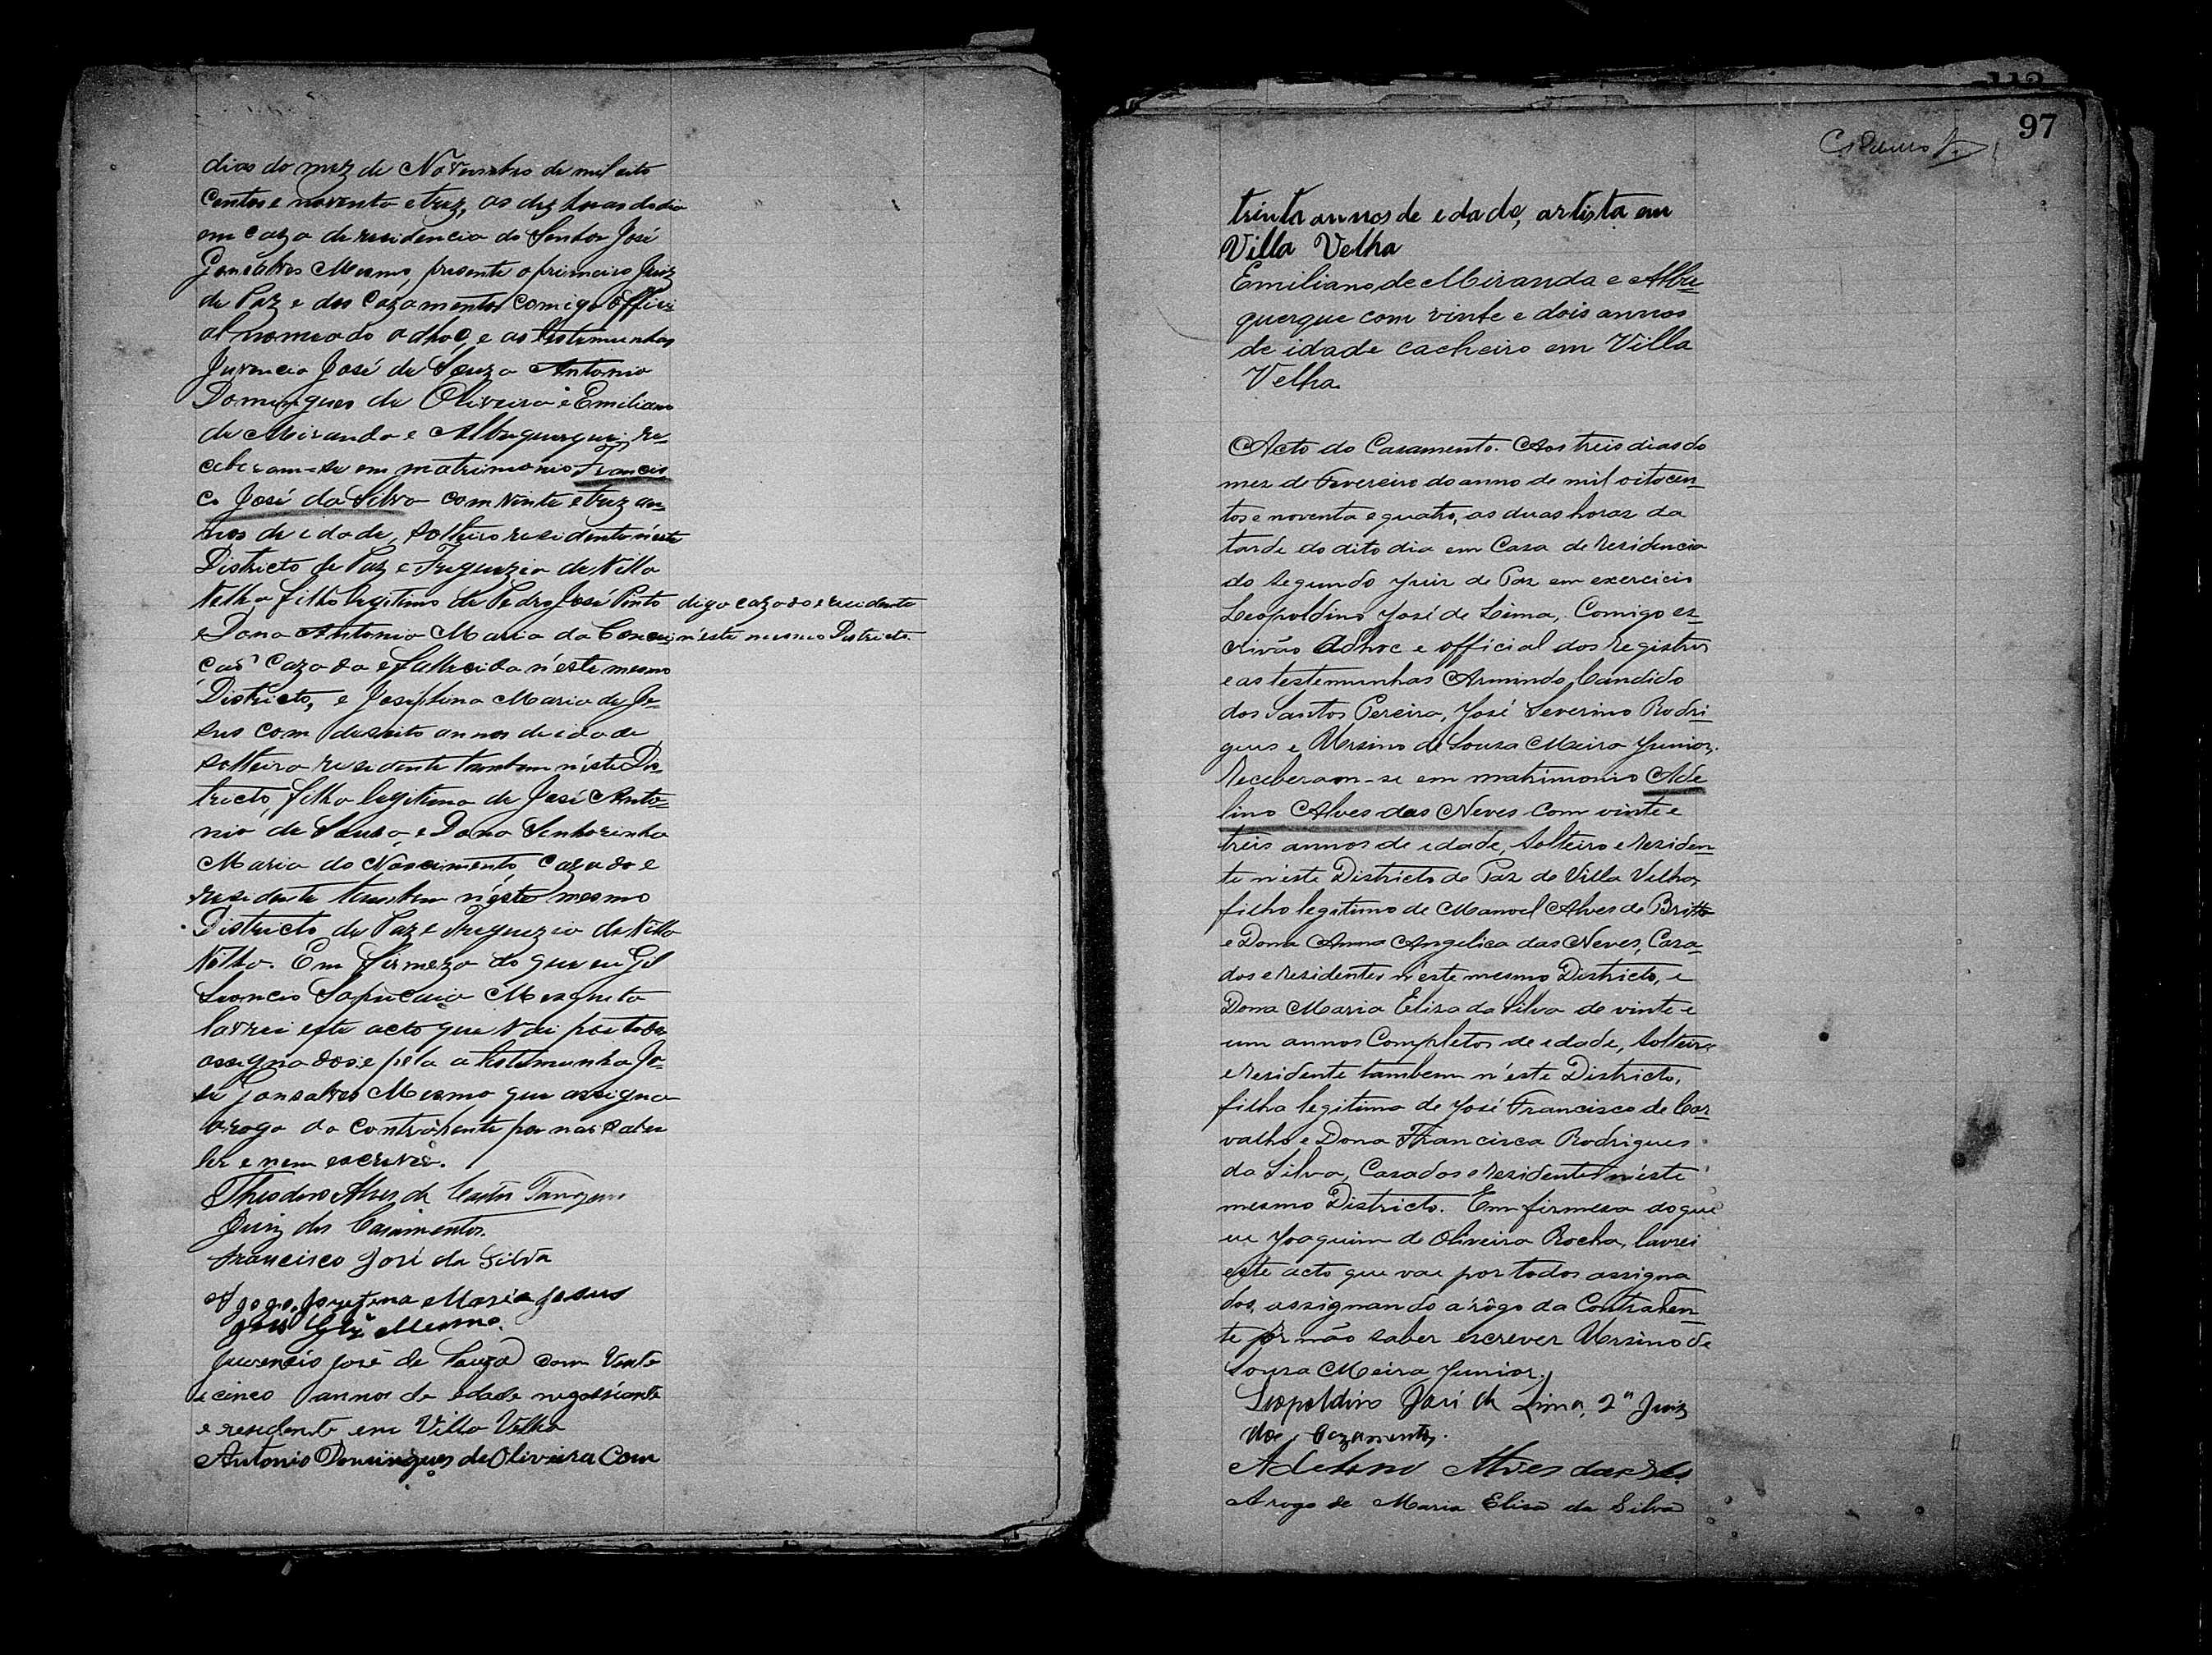 dias do mez de Novembro de mil oito
centos e noventa e trez, as dez horas do dia
em caza de residencia do Senhor José
Gonsalves Mesmo, presente o primeiro Juiz
de Paz e dos Cazamentos comigo offici-
al nomeado adhoc, e as testemunhas
Juvencio José de Souza Antonio
Domingues de Oliveira e Emiliano
de Miranda e Albuquerque, re-
ceberam-se em matrimonio Francis
co José da Silva com vinte e trez an-
nos de idade, solteiro residente n'este
Districto de Paz e Freguezia de Villa
Velha filho legitimo de Pedro José Pinto digo cazado e residente
e Dona Antonia Maria da Concei- n'este mesmo Districto
ção Cazada e fallecida n'este mesmo
Districto, e Josephina Maria de Je-
sus com desoito annos de idade
solteira residente tambem n'este Dis-
tricto, filha legitima de José Anto-
nio de Souza, e Dona Senhorinha
Maria do Nascimento, cazado e
residente tambem n'este mesmo
Districto de Paz e Freguezia de Villa
Velha. Em firmeza do que eu Gil
Leoncio Sapucaia Mesquita
lavrei este acto que vai por todos
assignados e pela a testemunha Jo-
sé Gonsalves Mesmo que assigna
arogo da contrahente por não saber
ler e nem escrever.
Theodoro Alves de Castro
Juiz dos Casamentos.
Francisco José da Silva
A rogo, Josefina Maria Jesus
José Glz Mesmo.
Juvencio José de Souza com Vinte
e cinco annos de edade negossiante
e residente em Villa Velha
Antonio Domingues de Oliveira Com
97
trinta annos de edade, artista em
Villa Velha
Emiliano de Miranda e Albu-
querque com vinte e dois annos
de idade cacheiro em Villa
Velha
Acto do Casamento. Aos treis dias do
mez de Fevereiro do anno de mil oitocen-
tos e noventa e quatro, as duas horas da
tarde do dito dia em Casa de residencia
do segundo Juiz de Paz em exercicio
Leopoldino José de Lima, Comigo es-
crivão Adhoc e official dos registros
e as testemunhas Armindo Candido
dos Santos Pereira, José Severino Rodri-
gues e Ursino de Sousa Meira Junior.
Receberam-se em matrimonio Ade
lino Alves das Neves com vinte e
treis annos de edade, solteiro e residen-
te n'este Districto de Paz de Villa Velha,
filho legitimo de Manoel Alves de Britto
e Dona Anna Angelica das Neves, Casa-
dos e residentes n'este mesmo Districto, e
Dona Maria Elisa da Silva de vinte e
um annos Completos de edade, solteira
e residente tambem n'este Districto,
filha legitima de José Francisco de Car-
valho e Dona Francisca Rodrigues
da Silva, Casados e residentes n'este
mesmo Districto. Em firmesa do que
eu Joaquim de Oliveira Rocha, lavrei
este acto que vae por todos assigna
dos, assignando a rôgo da Contrahen-
te por não saber escrever Ursino de
Sousa Meira Junior.
Leopoldino José de Lima, 2º Juiz
dos Cazamentos.
Adelino Alves das Neves
A rogo de Maria Elisa da Silva